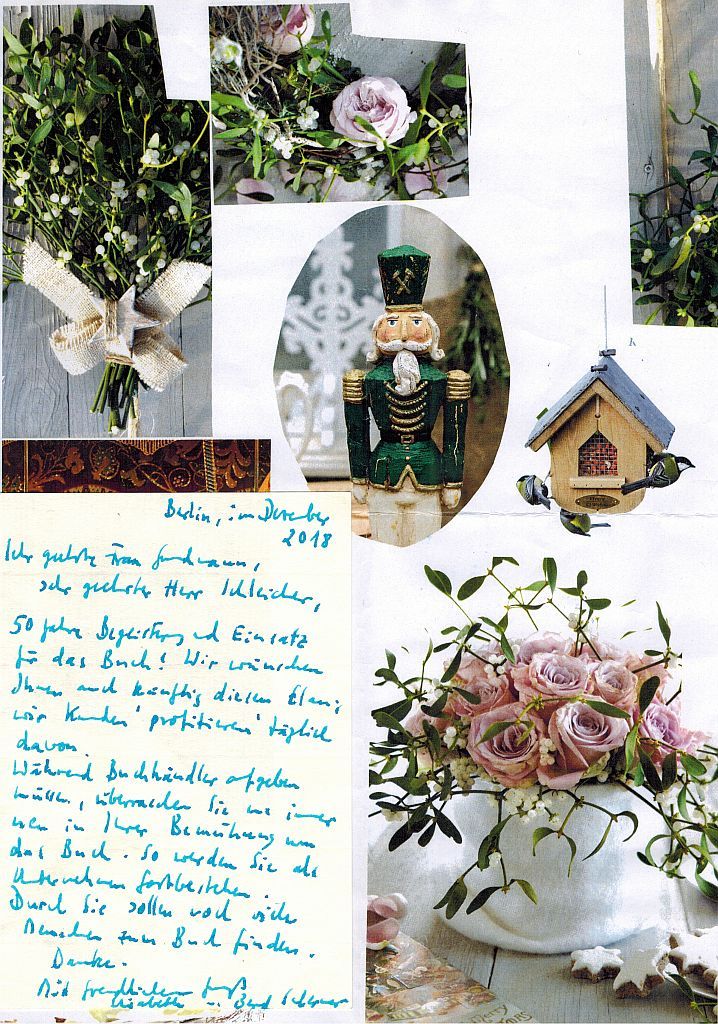 K
Berlin, im Dezember
2018
Sehr geehrte Frau
sehr geehrter Herr Schleicher,
50 Jahre Begeisterung und Einsatz
für das Buch! Wir wünschen
Ihnen auch künftig diesen Elan;
wir Kunden 'profitieren' täglich
davon.
Während Buchhändler aufgeben
müssen, überraschen Sie uns immer
neu in Ihrer Bemühung um
das Buch. So werden Sie als
Unternehmen fortbestehen.
Durch Sie sollen noch viele
Menschen zum Buch finden.
Danke.
Mit freundlichem Gruß
Elisabeth u. Bernd